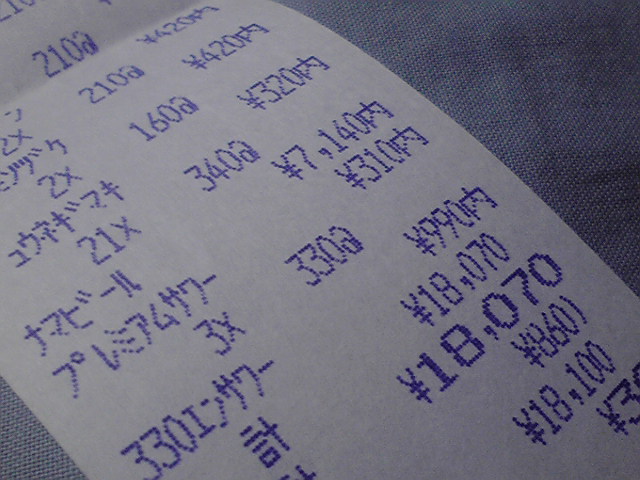 210@ ¥420内
2X 210@ ¥420内
ンザク
2X 160@ ¥320内
ュウネギマキ
21X 340@ ¥7,140内
ナマビール ¥310内
プレミアムサワー
3X 330@ ¥990内
330エンサワー ¥18,070
計 ¥18,070
¥860)
¥18,100